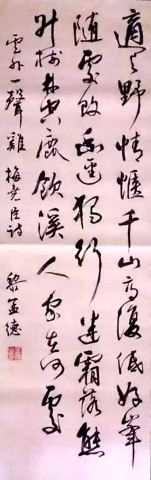 適与野情惬千山高復低好峯
随處改幽逕獨行迷霜落熊
升樹林空鹿飲溪人家在何處
雲外一聲雞 梅堯臣詩
黎孟德